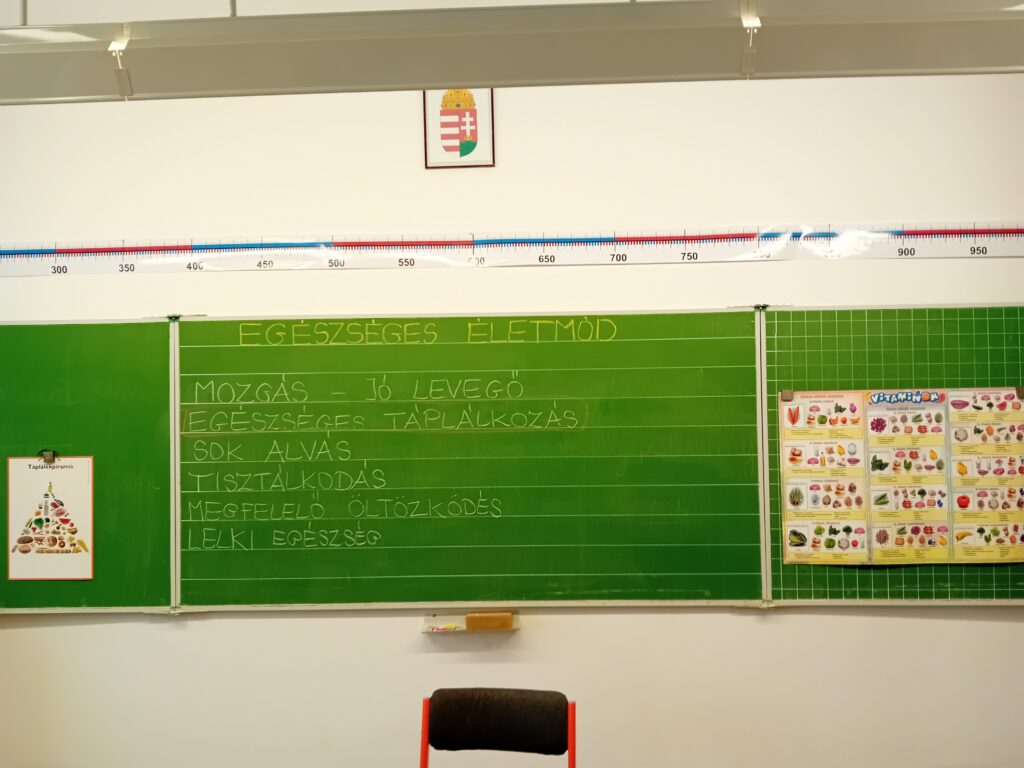 300 350 400 450 500 550 600 650 700 750 800 850 900 950
EGÉSZSÉGES ÉLETMÓD
MOZGÁS – JÓ LEVEGŐ
EGÉSZSÉGES TÁPLÁLKOZÁS
SOK ALVÁS
TISZTÁLKODÁS
MEGFELELŐ ÖLTÖZKÖDÉS
LELKI EGÉSZSÉG
Táplálékpiramis
VITAMINOK